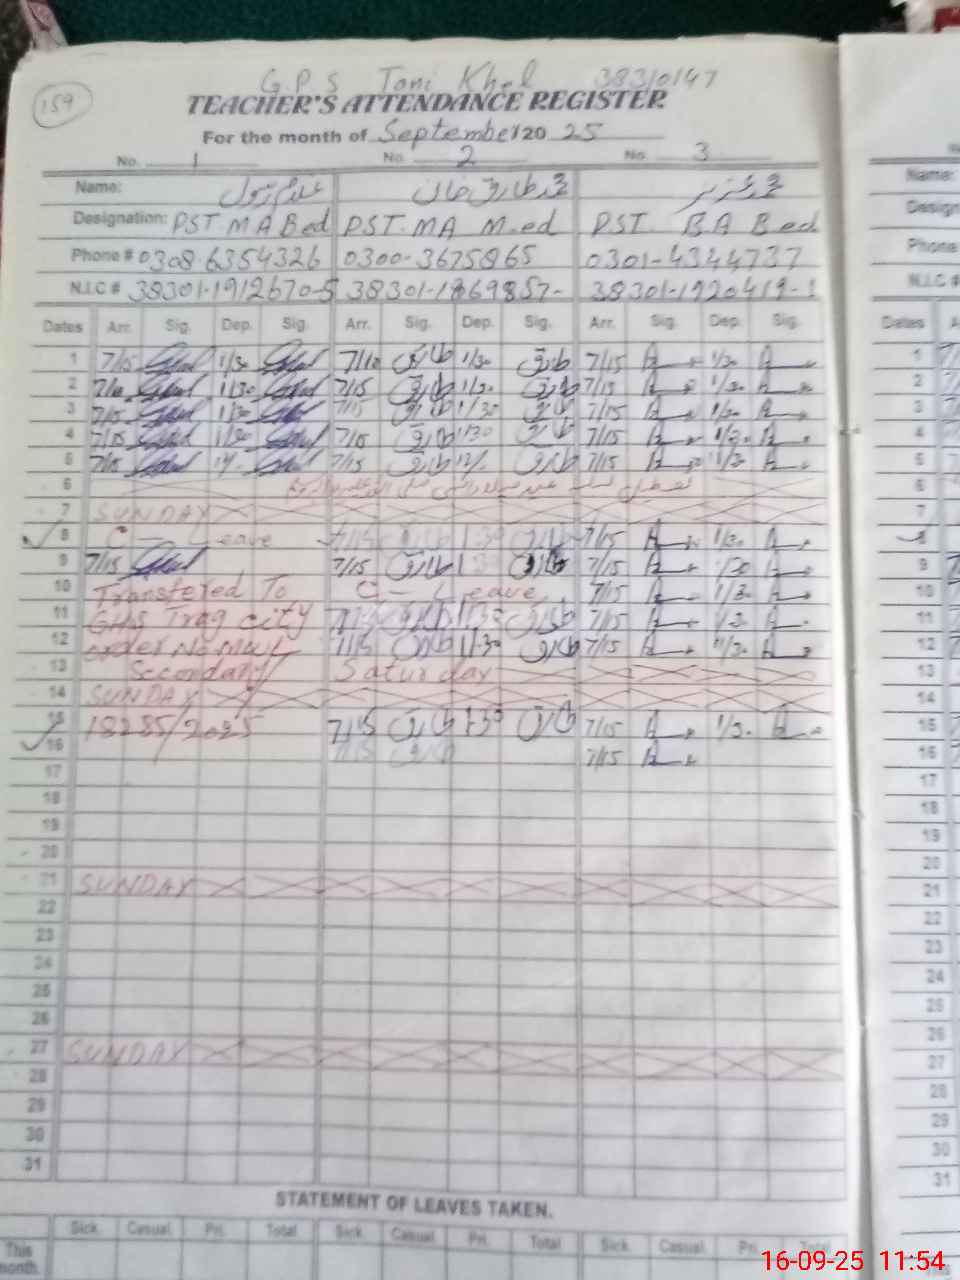 159
G.P.S Tani Khel 38310147
TEACHER'S ATTENDANCE REGISTER
For the month of September 2025
No. 1 No. 2 No. 3
Name: غلام رسول محمد طارق خان محمد عزیز
Designation: PST. MA Bed PST. MA M.ed PST. BA Bed
Phone # 0308-6354326 0300-3675865 0301-4344737
N.I.C # 38301-1912670-5 38301-1869857- 38301-1920419-1
Dates Arr. Sig. Dep. Sig. Arr. Sig. Dep. Sig. Arr. Sig. Dep. Sig.
1 7/15 1/30 7/10 طارق 1/30 طارق 7/15 1/30
2 7/10 1/30 7/15 طارق 1/30 طارق 7/15 1/30
3 7/15 1/30 7/15 طارق 1/30 طارق 7/15 1/30
4 7/15 1/30 7/15 طارق 1/30 طارق 7/15 1/30
5 7/15 7/15 طارق 12/- طارق 7/15 11/30
6 تعطیل
7 SUNDAY
8 C - Leave 7/15 طارق 1:30 طارق 7/15 1/30
9 7/15 7/15 طارق طارق 7/15 1/30
10 Transfered To C - Leave 7/15 1/30
11 GHS Trag city 7/15 طارق 11:30 طارق 7/15 1/30
12 order No 7/15 طارق 11:30 طارق 7/15 11/30
13 Secondary Saturday
14 SUNDAY
15 18285/2025 7/15 طارق 1:30 طارق 7/15 1/30
16 7/15 طارق 7/15
17
18
19
20
21 SUNDAY
22
23
24
25
26
27 SUNDAY
28
29
30
31
STATEMENT OF LEAVES TAKEN.
Sick. Casual. Pri. Total Sick. Casual. Pri. Total Sick. Casual. Pri. Total
This month.
Name:
Phone #
N.I.C #
Dates
1
2
3
4
5
6
7
9
10
11
12
13
14
15
16
17
18
19
20
21
22
23
24
25
26
27
28
29
30
31
16-09-25 11:54